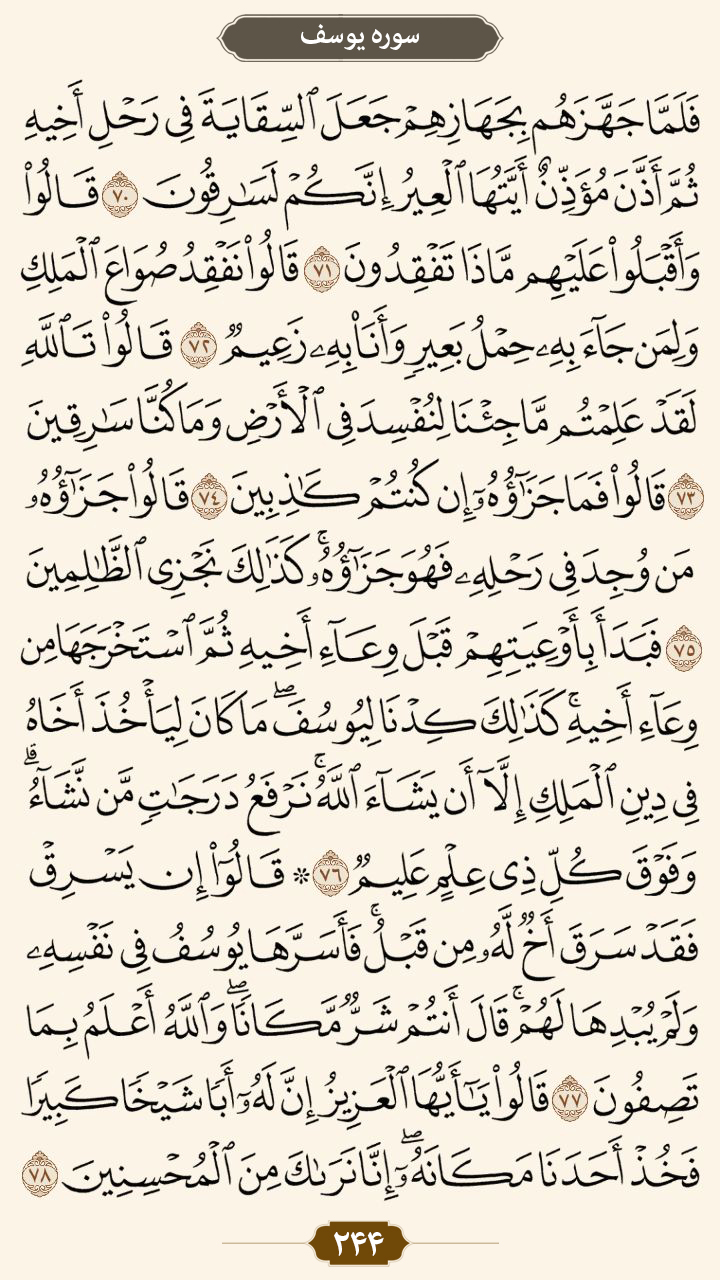 سوره یوسف
فَلَمَّا جَهَّزَهُم بِجَهَازِهِمْ جَعَلَ ٱلسِّقَايَةَ فِى رَحْلِ أَخِيهِ
ثُمَّ أَذَّنَ مُؤَذِّنٌ أَيَّتُهَا ٱلْعِيرُ إِنَّكُمْ لَسَـٰرِقُونَ ٧٠ قَالُوا۟
وَأَقْبَلُوا۟ عَلَيْهِم مَّاذَا تَفْقِدُونَ ٧١ قَالُوا۟ نَفْقِدُ صُوَاعَ ٱلْمَلِكِ
وَلِمَن جَآءَ بِهِۦ حِمْلُ بَعِيرٍ وَأَنَا۠ بِهِۦ زَعِيمٌ ٧٢ قَالُوا۟ تَٱللَّهِ
لَقَدْ عَلِمْتُم مَّا جِئْنَا لِنُفْسِدَ فِى ٱلْأَرْضِ وَمَا كُنَّا سَـٰرِقِينَ
٧٣ قَالُوا۟ فَمَا جَزَٰٓؤُهُۥٓ إِن كُنتُمْ كَـٰذِبِينَ ٧٤ قَالُوا۟ جَزَٰٓؤُهُۥ
مَن وُجِدَ فِى رَحْلِهِۦ فَهُوَ جَزَٰٓؤُهُۥ ۚ كَذَٰلِكَ نَجْزِى ٱلظَّـٰلِمِينَ
٧٥ فَبَدَأَ بِأَوْعِيَتِهِمْ قَبْلَ وِعَآءِ أَخِيهِ ثُمَّ ٱسْتَخْرَجَهَا مِن
وِعَآءِ أَخِيهِ ۚ كَذَٰلِكَ كِدْنَا لِيُوسُفَ ۖ مَا كَانَ لِيَأْخُذَ أَخَاهُ
فِى دِينِ ٱلْمَلِكِ إِلَّآ أَن يَشَآءَ ٱللَّهُ ۚ نَرْفَعُ دَرَجَـٰتٍ مَّن نَّشَآءُ ۗ
وَفَوْقَ كُلِّ ذِى عِلْمٍ عَلِيمٌ ٧٦ ۞ قَالُوٓا۟ إِن يَسْرِقْ
فَقَدْ سَرَقَ أَخٌ لَّهُۥ مِن قَبْلُ ۚ فَأَسَرَّهَا يُوسُفُ فِى نَفْسِهِۦ
وَلَمْ يُبْدِهَا لَهُمْ ۚ قَالَ أَنتُمْ شَرٌّ مَّكَانًا ۖ وَٱللَّهُ أَعْلَمُ بِمَا
تَصِفُونَ ٧٧ قَالُوا۟ يَـٰٓأَيُّهَا ٱلْعَزِيزُ إِنَّ لَهُۥٓ أَبًا شَيْخًا كَبِيرًا
فَخُذْ أَحَدَنَا مَكَانَهُۥٓ ۖ إِنَّا نَرَىٰكَ مِنَ ٱلْمُحْسِنِينَ ٧٨
۲۴۴